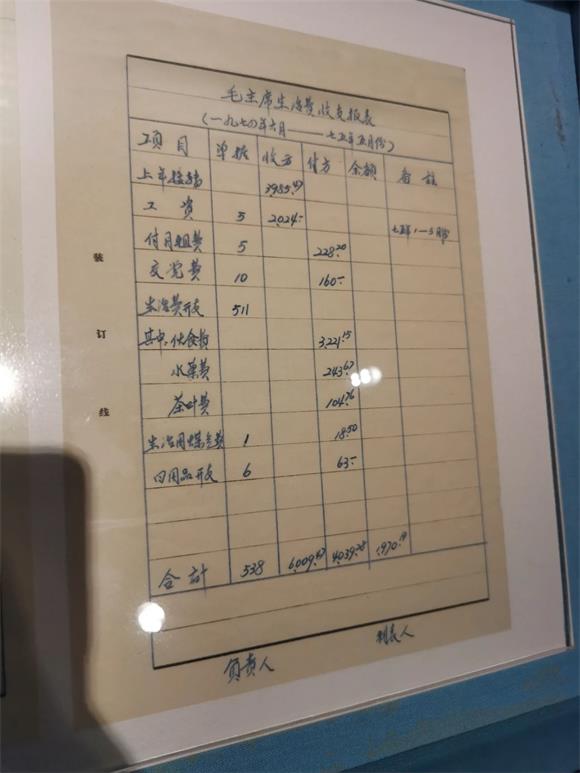 毛主席生活费收支报表
(一九七四年六月——七五年五月份)
项目 单据 收方 付方 余额 备註
上年结转 3985.47
工资 5 2,024.- 七五年1—5月份
付月租费 5 228.20
交党费 10 160.-
生活费开支 511
其中:伙食费 3,221.15
水菓费 243.67
茶叶费 104.76
生活用煤气费 1 18.50
日用品开支 6 63.-
合计 538 6,009.47 4,039.28 1,970.19
负责人 制表人
装订线